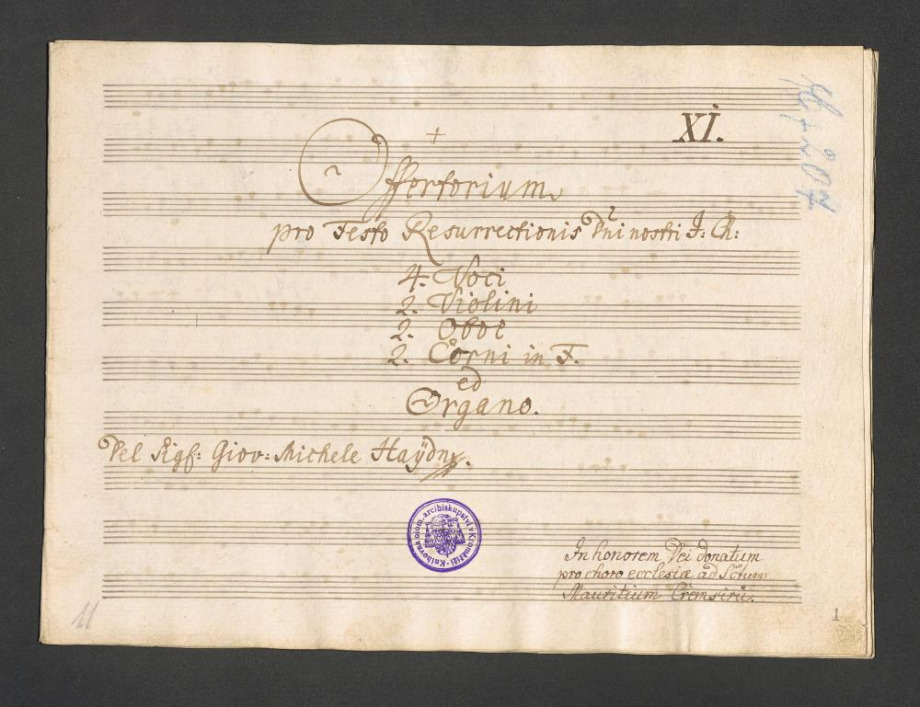 XI.
+
Offertorium
pro Festo Resurrectionis Dñi nostri J: Ch:
4. Voci
2. Violini
2. Oboe
2. Corni in F.
ed
Organo.
Del Sigf: Giov: Michele Haÿdn.
Knihovna olom. arcibiskupství v Kroměříži
In honorem Dei donatum
pro choro ecclesiæ ad S̃ctum
Mauritium Cremsirii.
11
1